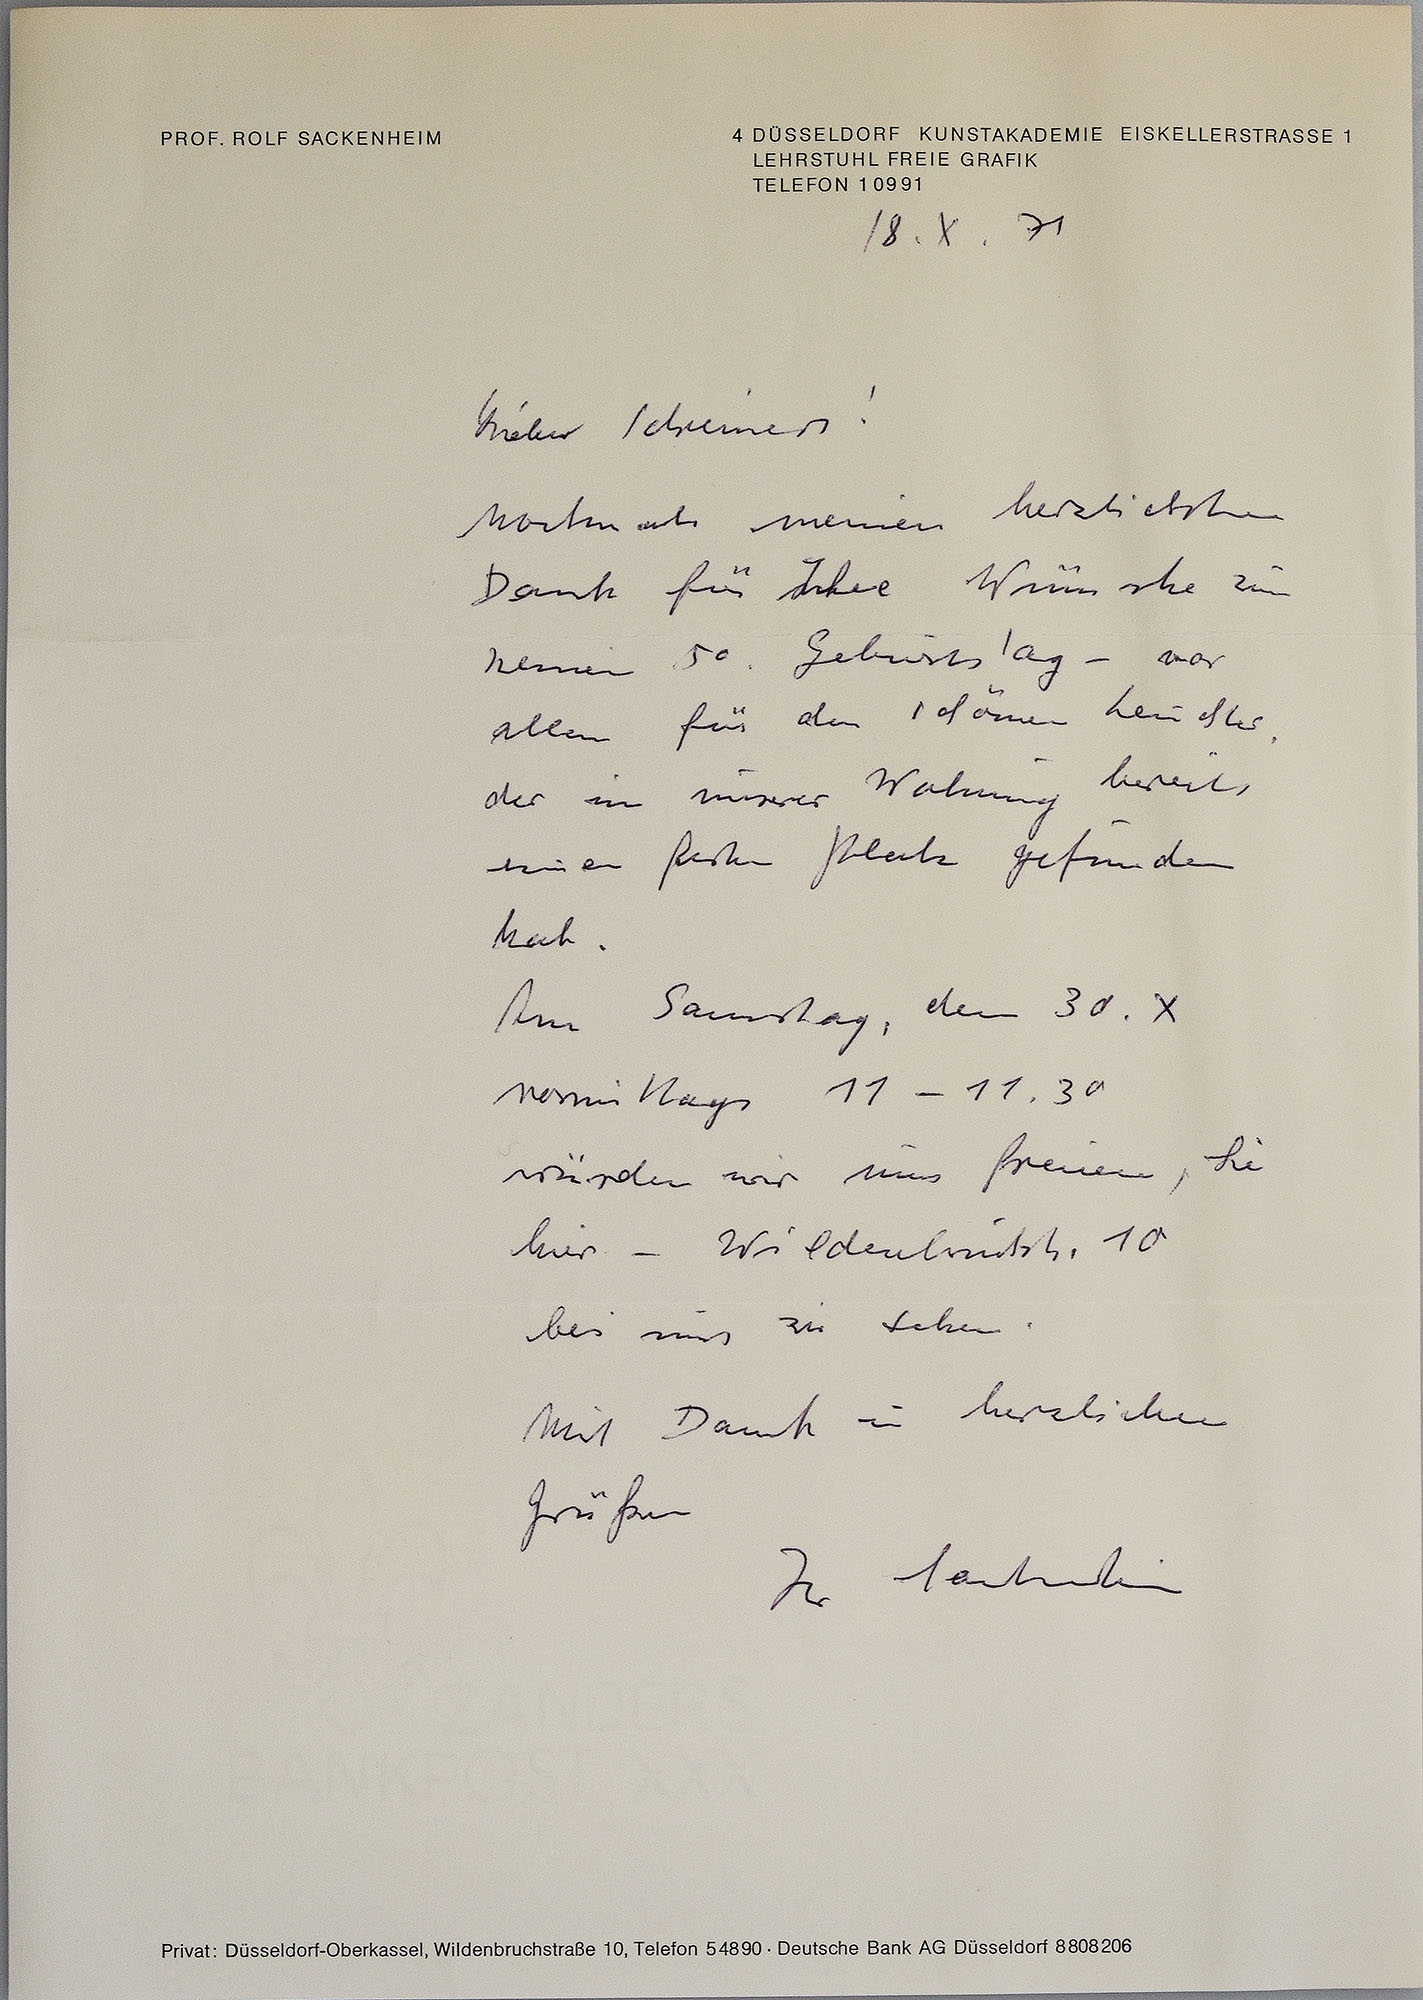 PROF. ROLF SACKENHEIM
4 DÜSSELDORF KUNSTAKADEMIE EISKELLERSTRASSE 1
LEHRSTUHL FREIE GRAFIK
TELEFON 10991
18. X. 71
Lieber Schreiners!
Nochmals meinen herzlichsten
Dank für Ihre Wünsche zu
meinem 50. Geburtstag – vor
allem für den schönen Leuchter,
der in unserer Wohnung bereits
einen festen Platz gefunden
hat.
Am Samstag, dem 30. X
vormittags 11 – 11.30
würden wir uns freuen, Sie
hier – Wildenbruchstr. 10
bei uns zu sehen.
Mit Dank u herzlichen
Grüßen
Ihr Sackenheim
Privat: Düsseldorf-Oberkassel, Wildenbruchstraße 10, Telefon 54890 · Deutsche Bank AG Düsseldorf 8808206